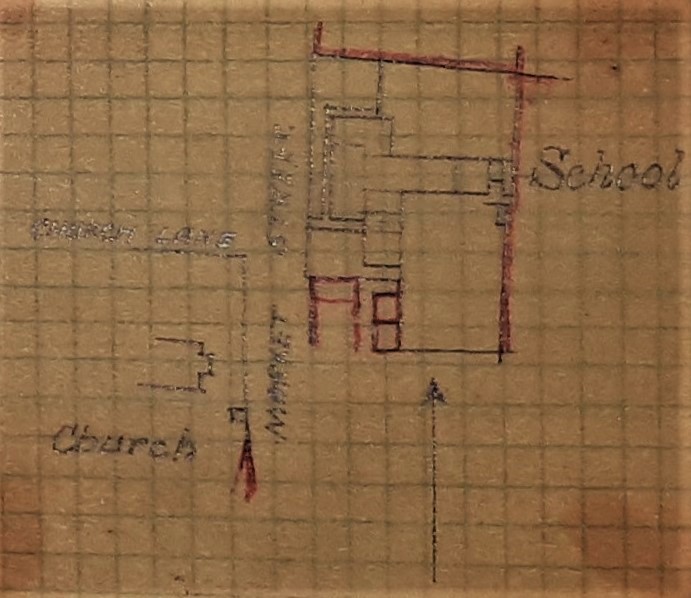 School
CHURCH LANE
MARKET STREET
Church